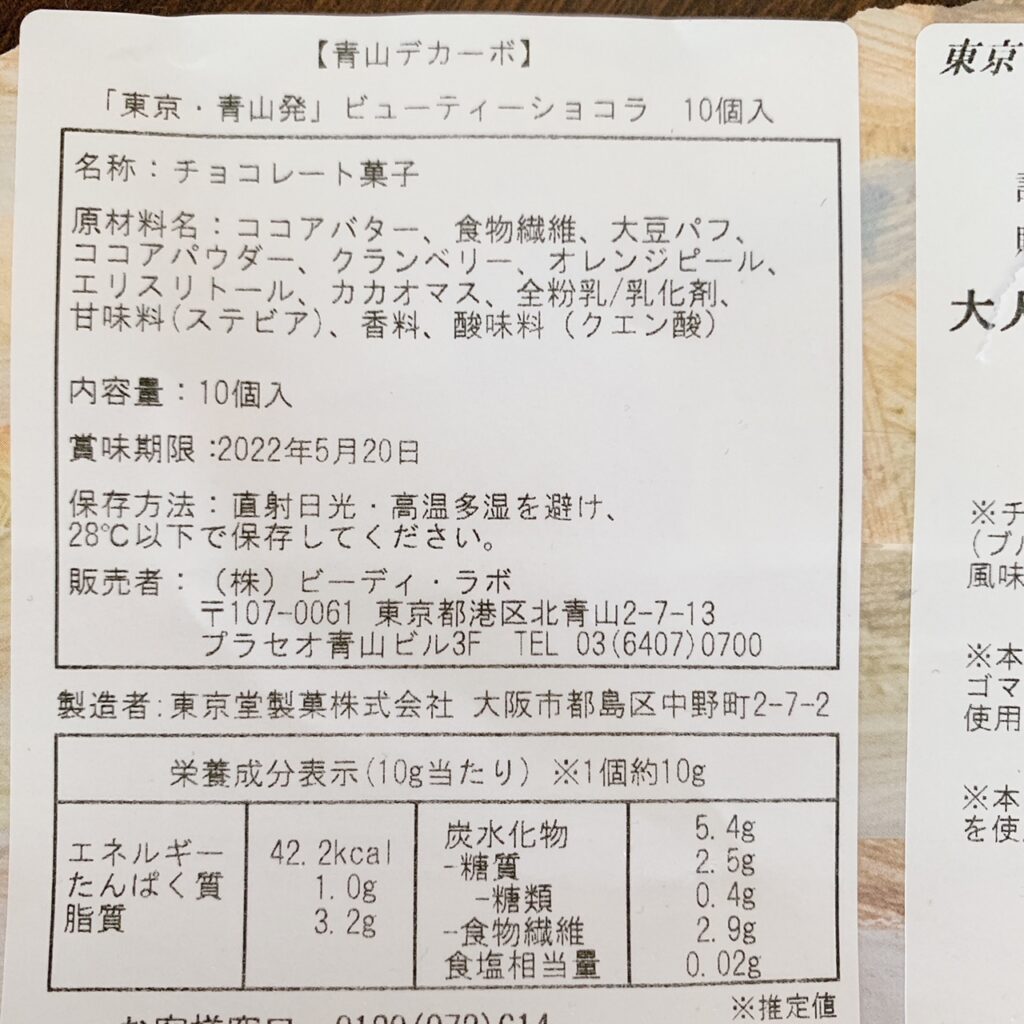 【青山デカーボ】
「東京・青山発」ビューティーショコラ 10個入
名称：チョコレート菓子
原材料名：ココアバター、食物繊維、大豆パフ、
ココアパウダー、クランベリー、オレンジピール、
エリスリトール、カカオマス、全粉乳/乳化剤、
甘味料(ステビア)、香料、酸味料（クエン酸）
内容量：10個入
賞味期限：2022年5月20日
保存方法：直射日光・高温多湿を避け、
28℃以下で保存してください。
販売者：（株）ビーディ・ラボ
〒107-0061 東京都港区北青山2-7-13
プラセオ青山ビル3F TEL 03(6407)0700
製造者:東京堂製菓株式会社 大阪市都島区中野町2-7-2
栄養成分表示(10g当たり) ※1個約10g
エネルギー 42.2kcal
たんぱく質 1.0g
脂質 3.2g
炭水化物 5.4g
-糖質 2.5g
-糖類 0.4g
-食物繊維 2.9g
食塩相当量 0.02g
※推定値
東京
※チ
(ブ
風味
※本
ゴマ
使用
※本
を使